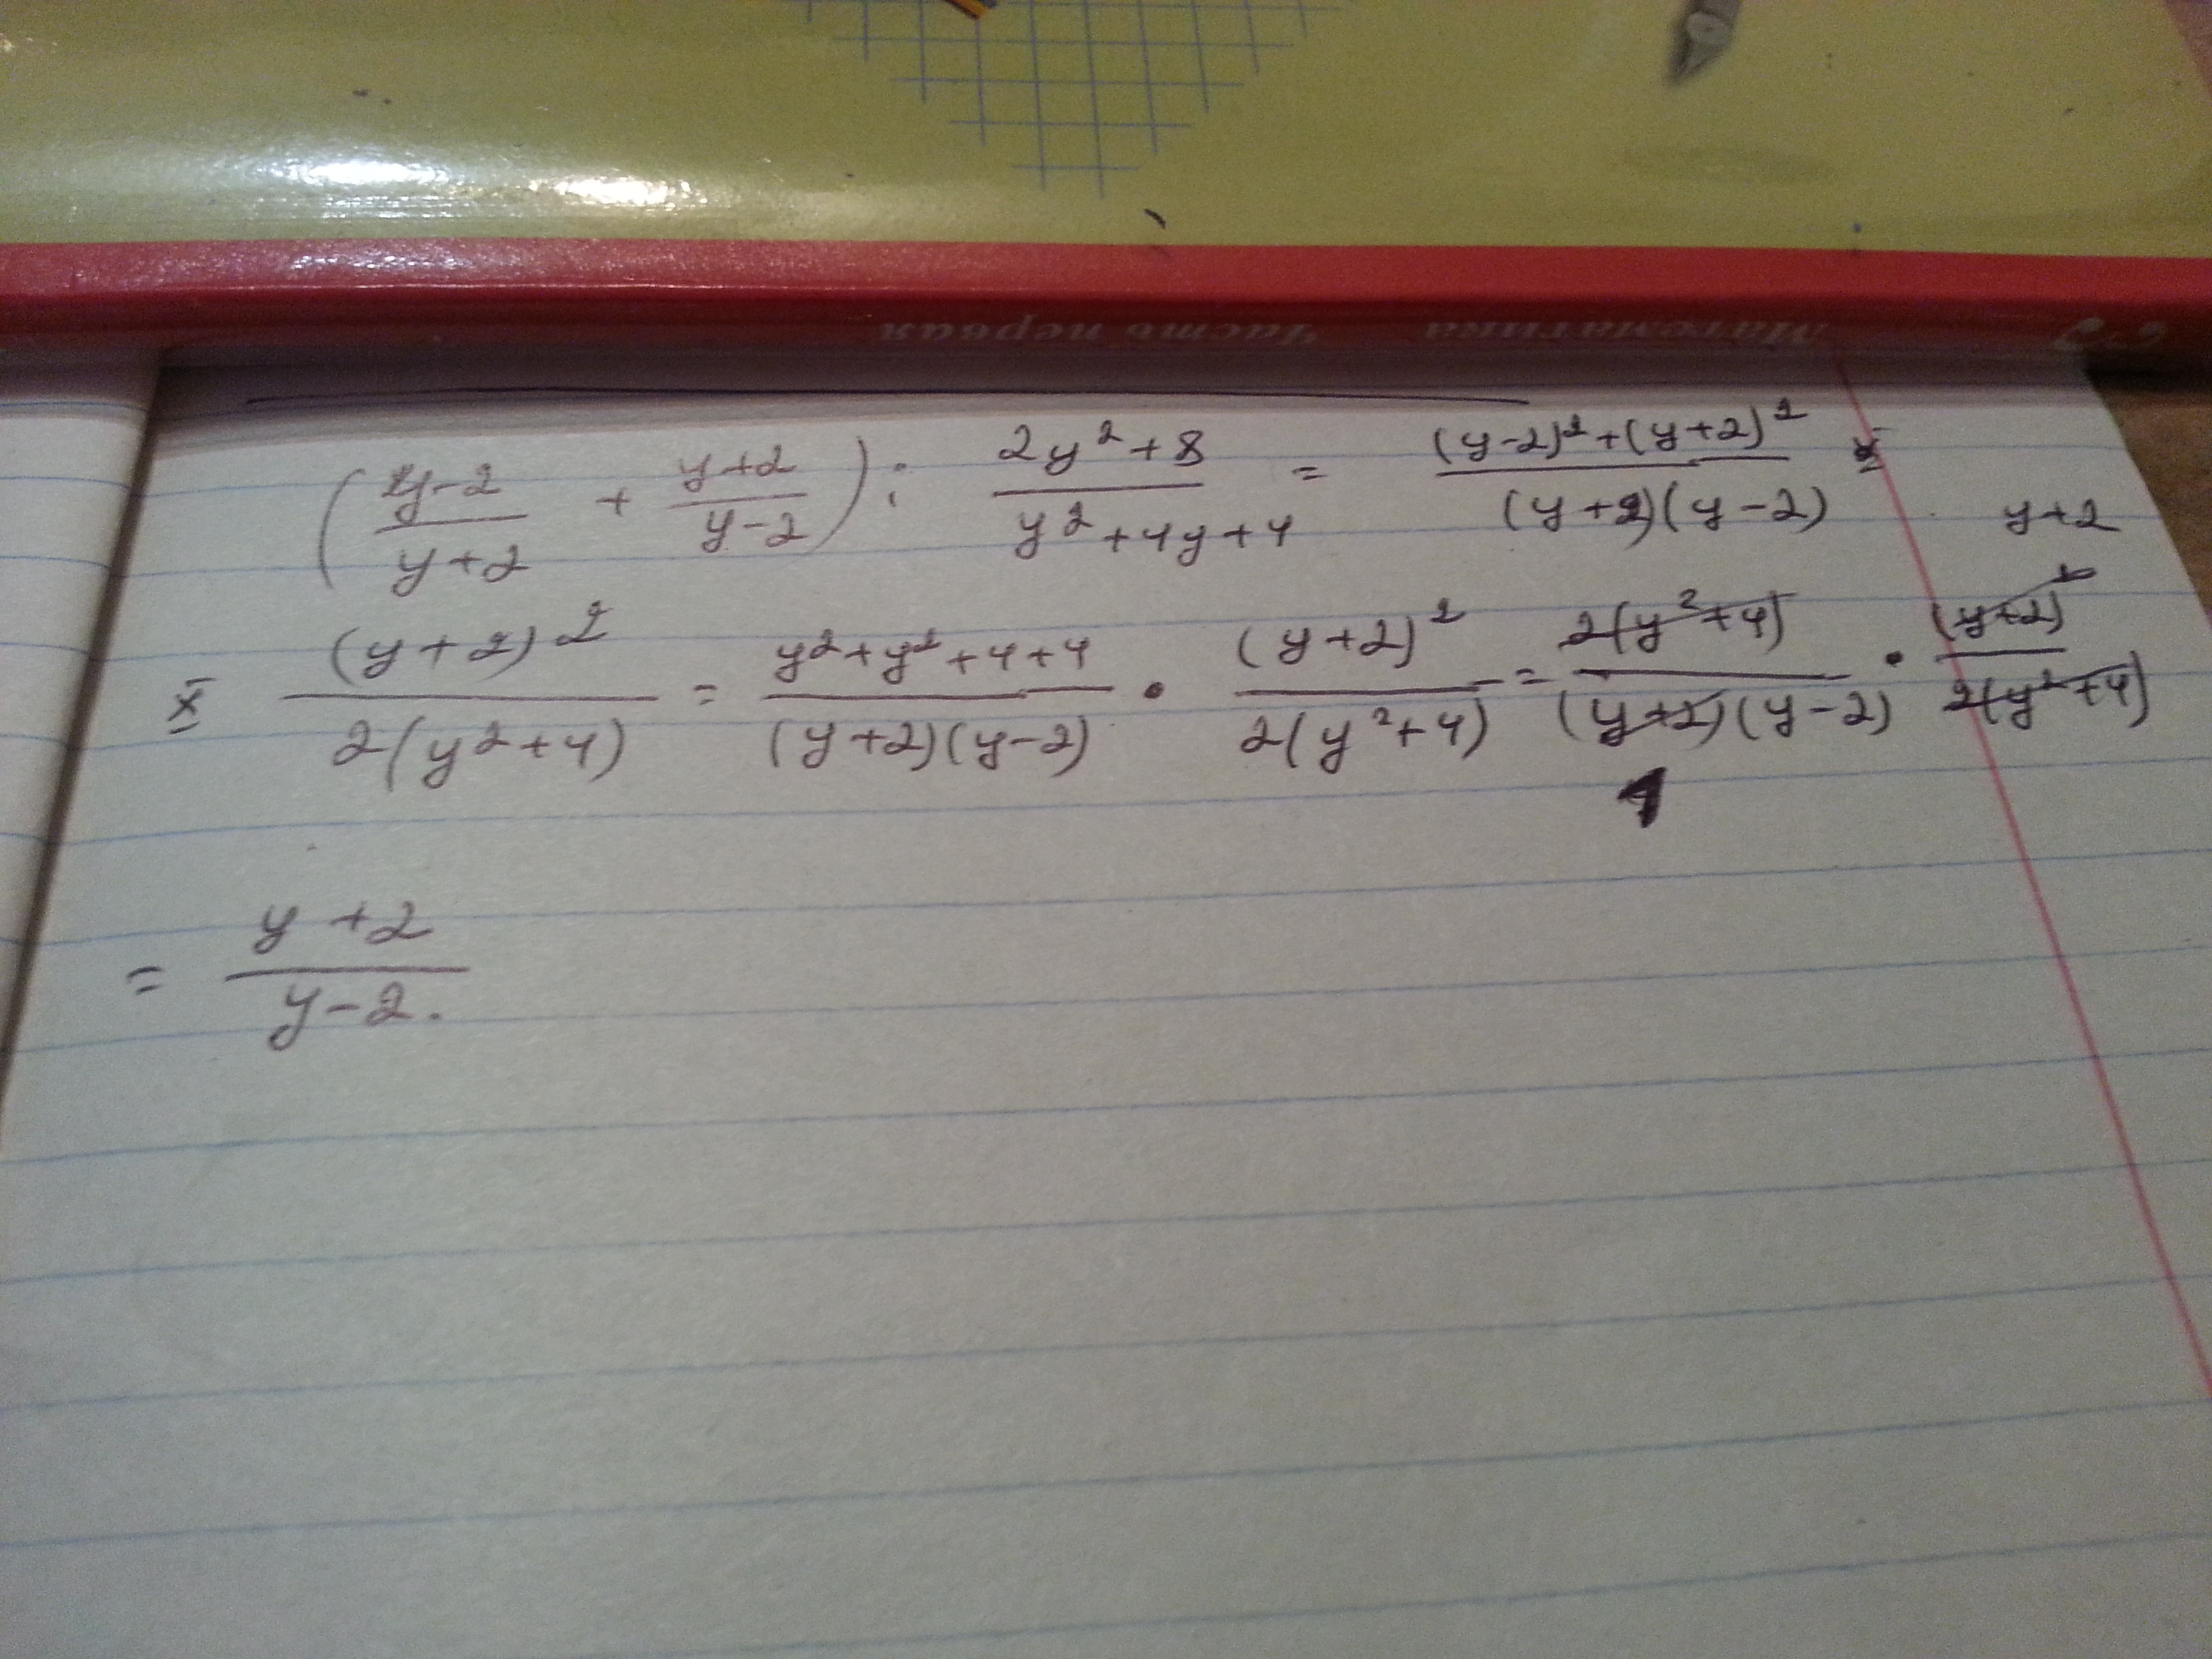 Математика Часть первая
(y-2)/(y+2) + (y+2)/(y-2)) : (2y²+8)/(y²+4y+4) = ((y-2)²+(y+2)²)/((y+2)(y-2)) ×
× (y+2)²/(2(y²+4)) = (y²+y²+4+4)/((y+2)(y-2)) · (y+2)²/(2(y²+4)) = 2(y²+4)/((y+2)(y-2)) · (y+2)²/(2(y²+4)) y+2
1
= (y+2)/(y-2).